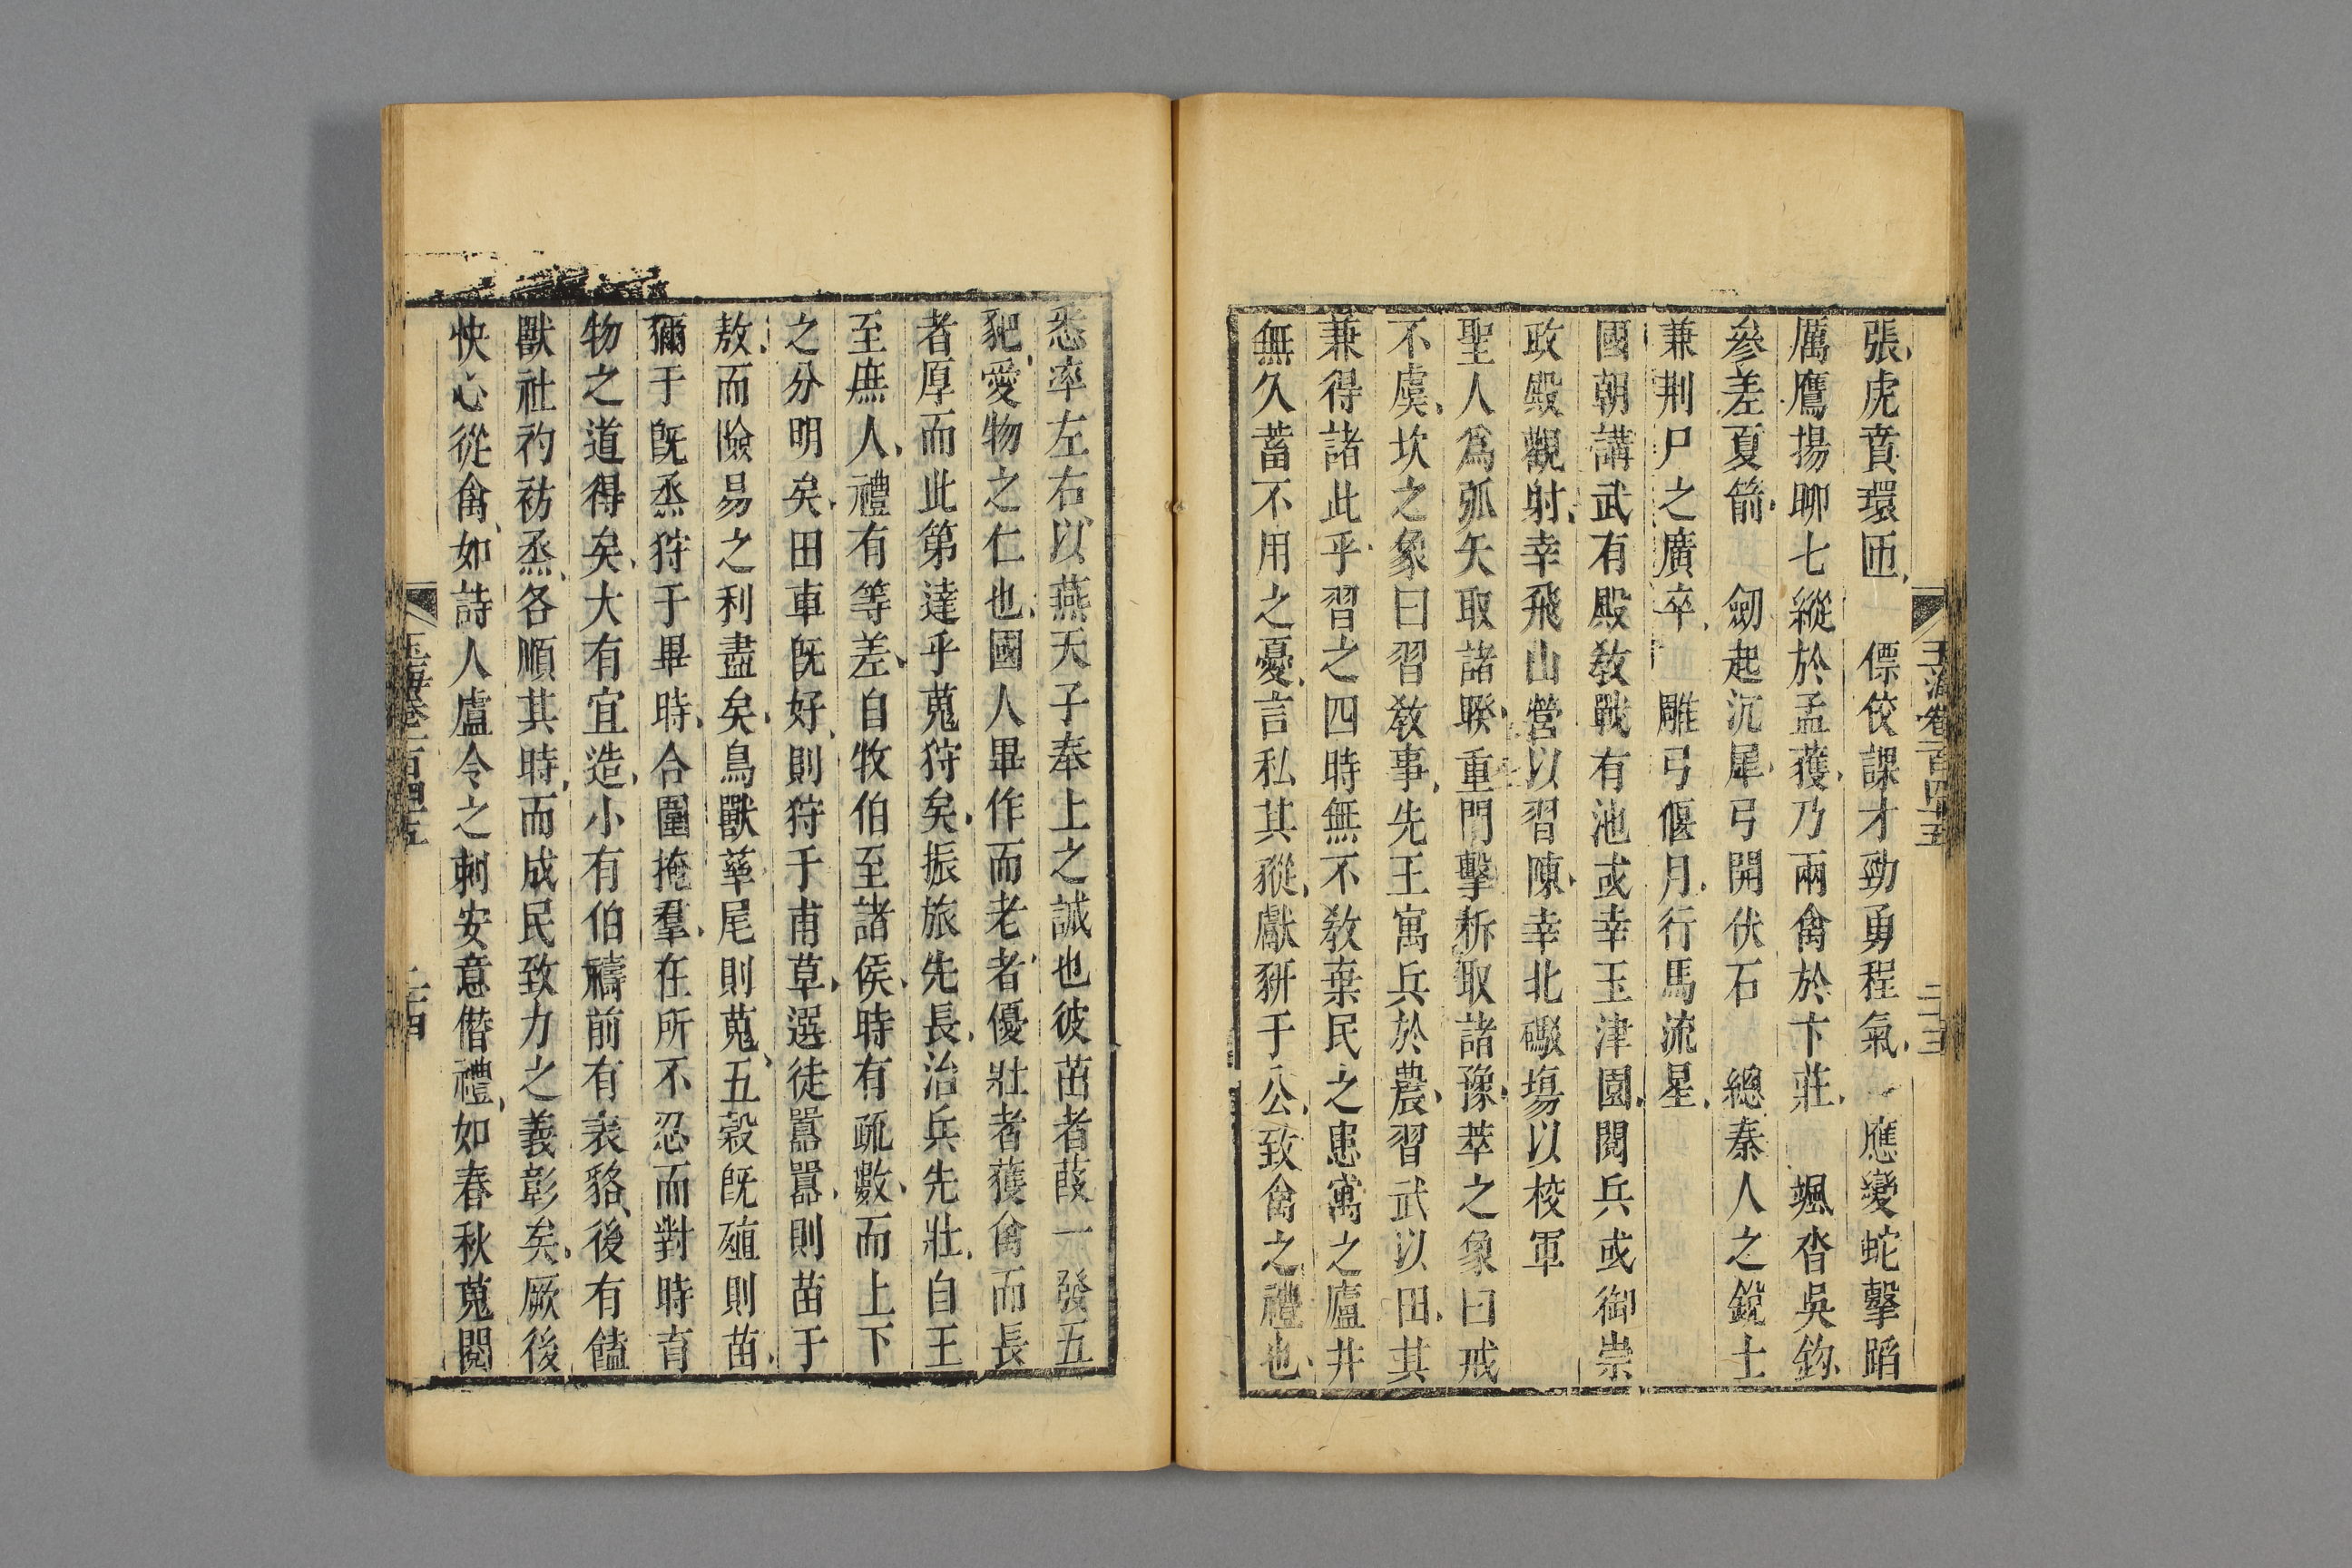 張虎賁環匝 僄佼課才勁勇程氣 應變蛇擊蹈
厲鷹揚聊七縱於孟獲乃兩禽於卞莊 颯沓吳鉤
參差夏箭 劒起沉犀弓開伏石 總秦人之銳士
兼荆尸之廣卒 雕弓偃月行馬流星
國朝講武有殿敎戰有池或幸玉津園閱兵或御崇
政殿觀射幸飛山營以習陳幸北礮塲以校軍
聖人爲弧矢取諸睽重門擊柝取諸豫萃之象曰戒
不虞坎之象曰習敎事先王寓兵於農習武以田其
兼得諸此乎習之四時無不敎棄民之患寓之廬井
無久蓄不用之憂言私其豵獻豜于公致禽之禮也
玉海卷一百四十五 二十三
悉率左右以燕天子奉上之誠也彼茁者葭一發五
豝愛物之仁也國人畢作而老者優壯者獲禽而長
者厚而此第達乎蒐狩矣振旅先長治兵先壯自王
至庶人禮有等差自牧伯至諸侯時有疏數而上下
之分明矣田車旣好則狩于甫草選徒囂囂則苗于
敖而險易之利盡矣鳥獸孳尾則蒐五穀旣殖則苗
獮于旣烝狩于畢時合圍掩羣在所不忍而對時育
物之道得矣大有宜造小有伯禱前有表貉後有饁
獸社礿祊烝各順其時而成民致力之義彰矣厥後
快心從禽如詩人盧令之刺安意僭禮如春秋蒐閱
玉海卷一百四十五 二十四